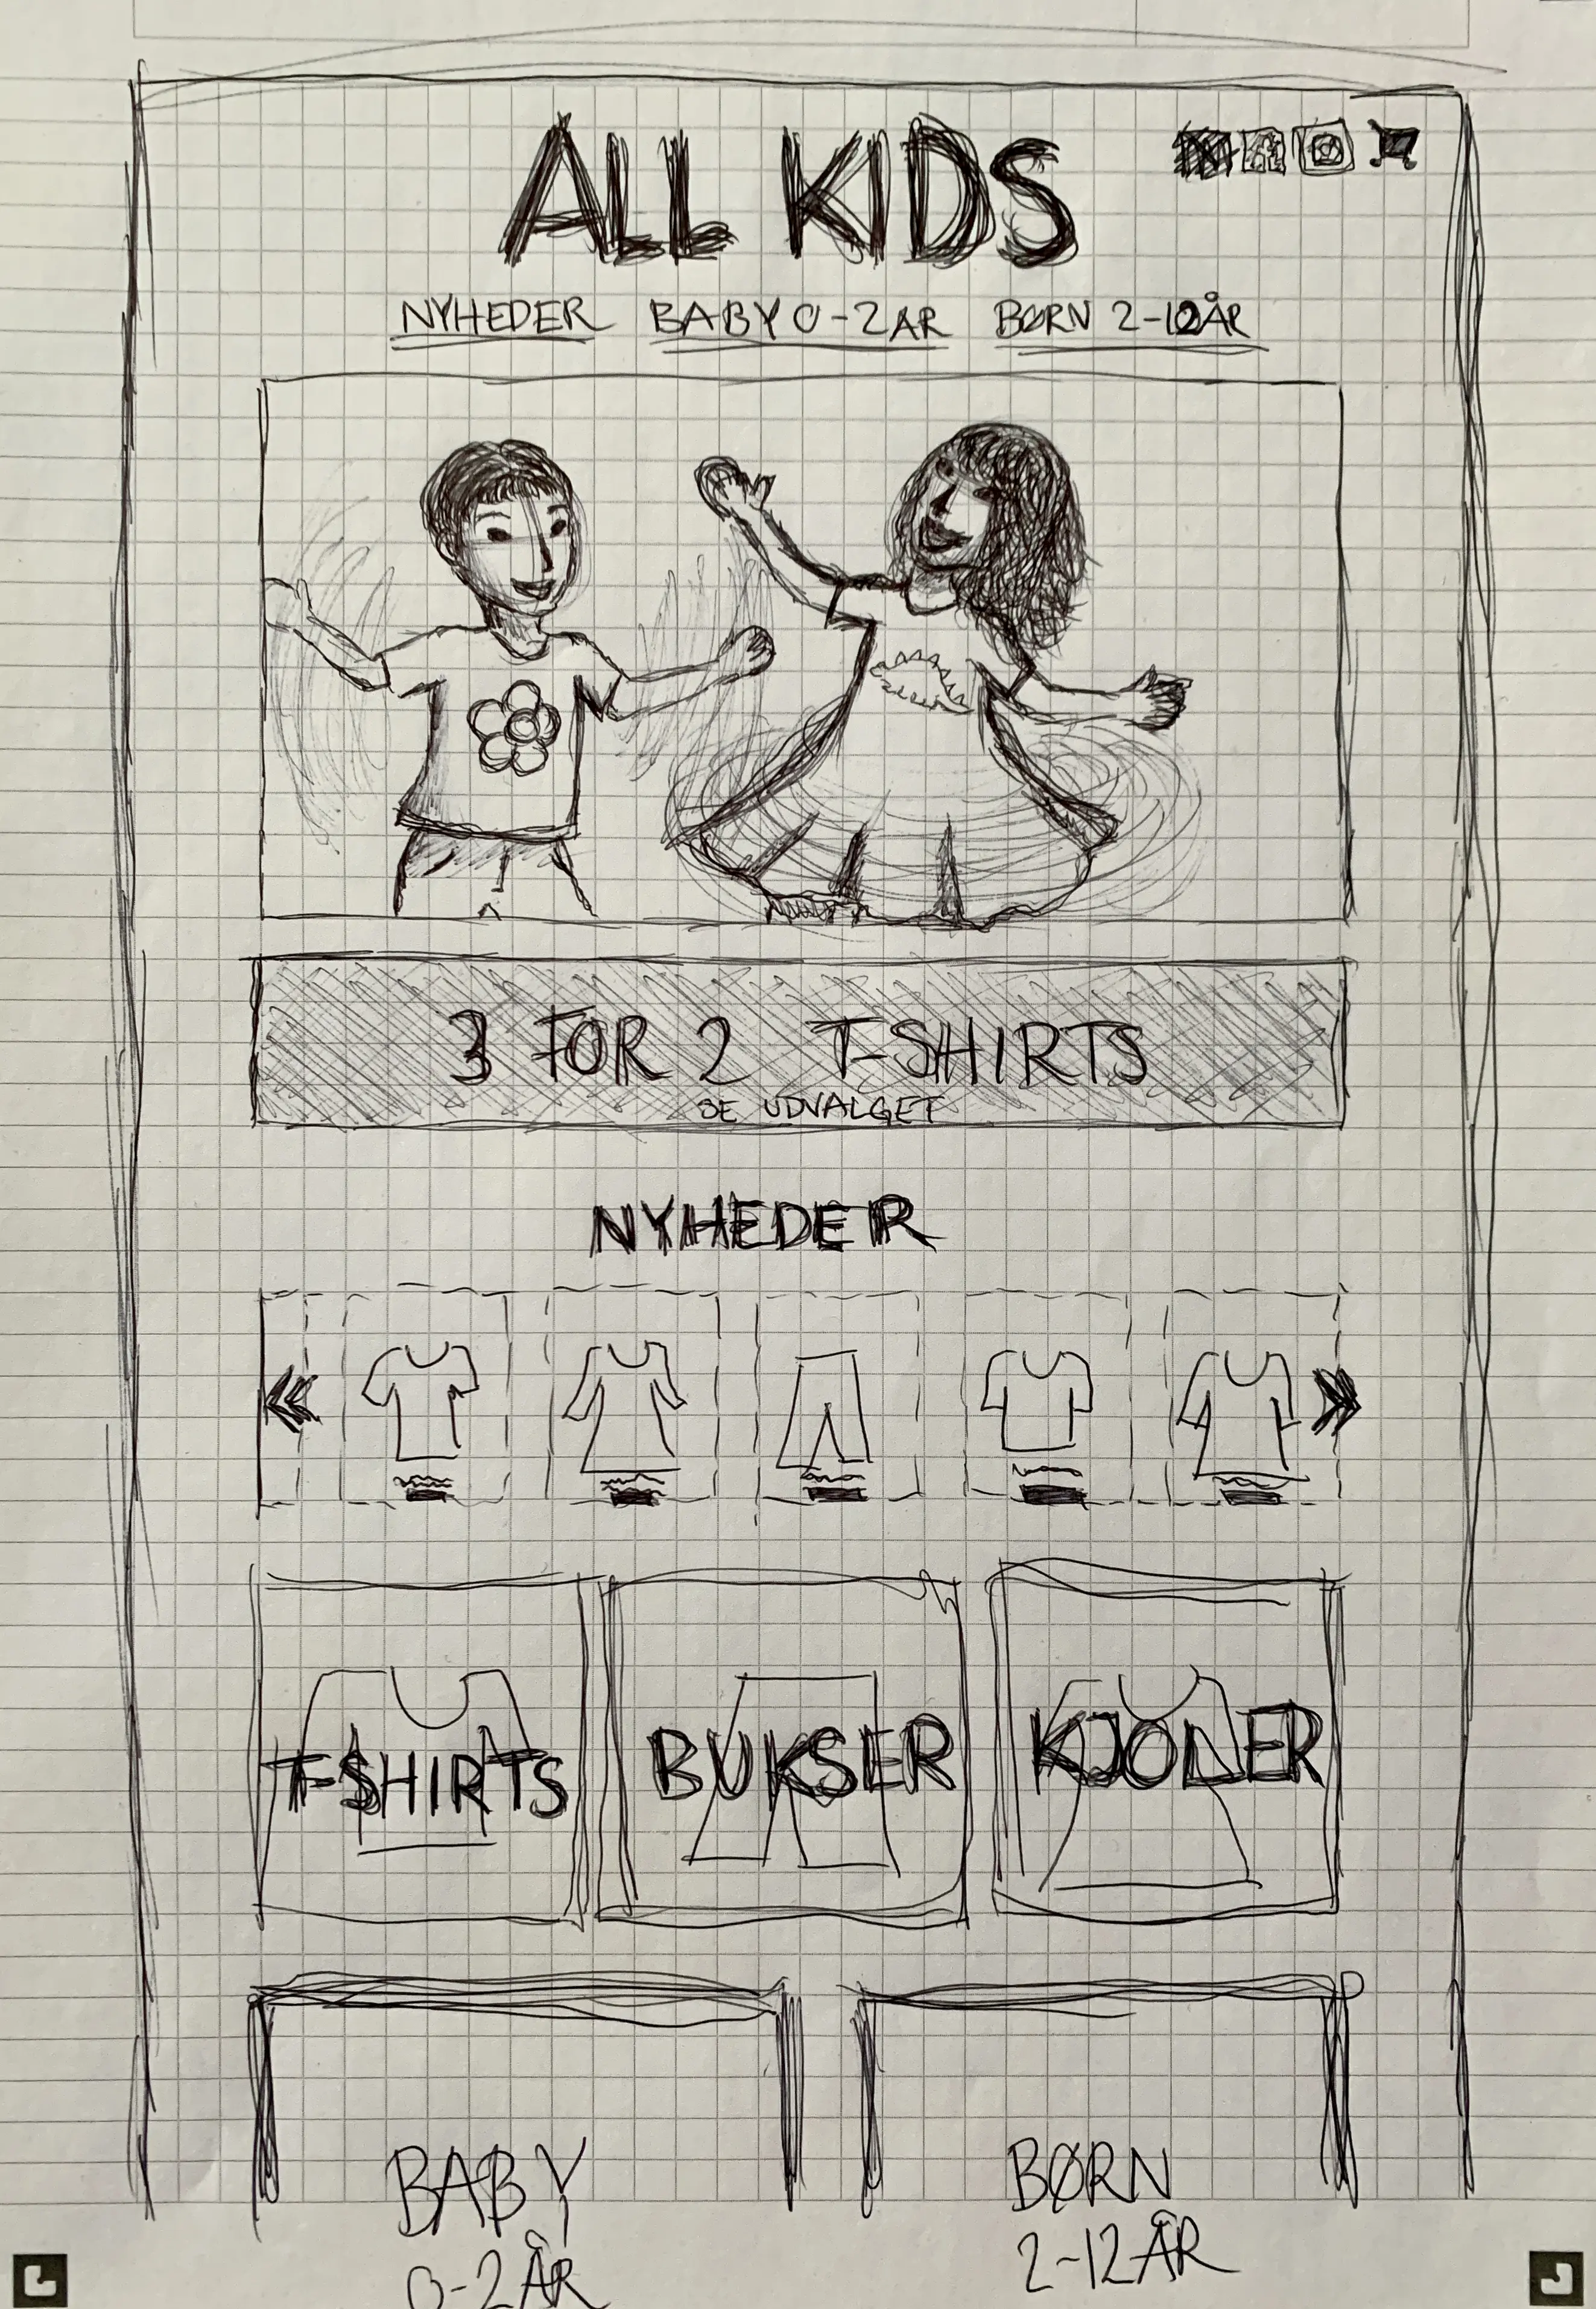 ALL KIDS
NYHEDER BABY 0-2 ÅR BØRN 2-12 ÅR
3 FOR 2 T-SHIRTS
SE UDVALGET
NYHEDER
T-SHIRTS BUKSER KJOLER
BABY BØRN
0-2 ÅR 2-12 ÅR